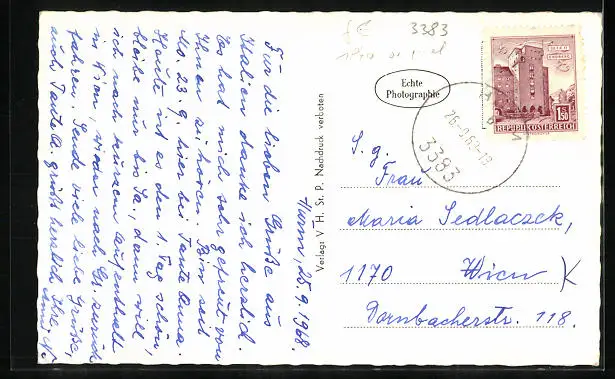 3383
Echte
Photographie
REPUBLIK ÖSTERREICH
1.50
26.-9.68-18
3383
Verlags V H. St. P. Nachdruck verboten
25.9.1968.
Für die lieben Grüße aus
Italien danke ich herzlich.
Es hat mich sehr gefreut von
Ihnen zu hören. Bin seit
Mo. 23.9. hier bei Tante Anna.
Heute ist es den 1. Tag schön,
bleibe nur bis Sa., dann will
ich nach kurzem Aufenthalt
in Wien, wieder nach Gr. zurück
fahren. Sende viele liebe Grüße,
auch Tante A. grüßt herzlich Ihre
S. g.
Frau
Maria Sedlaczek,
1170 Wien
Dornbacherstr. 118.